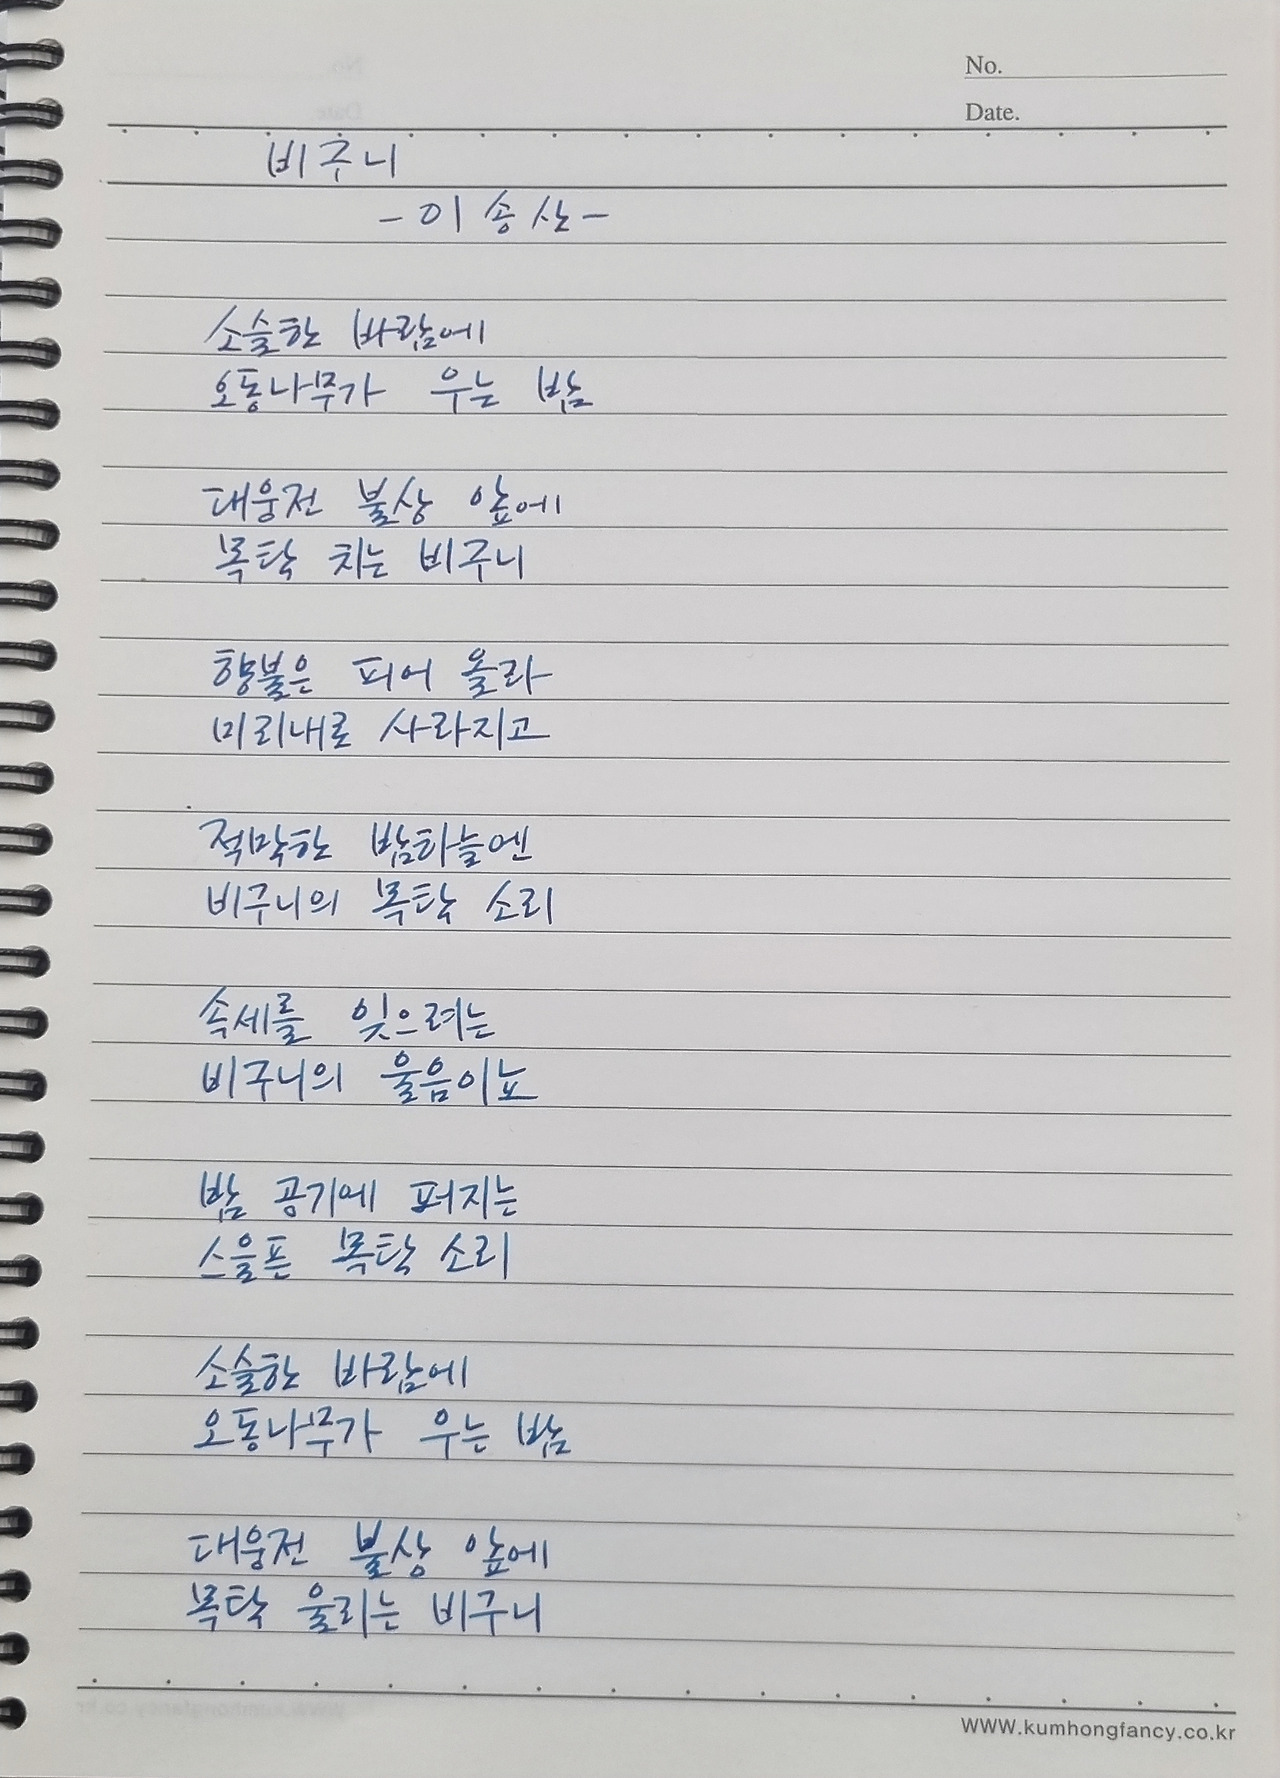 No.
Date.
비구니
- 이송산 -
소슬한 바람에
오동나무가 우는 밤
대웅전 불상 앞에
목탁 치는 비구니
향불은 피어 올라
미리내로 사라지고
적막한 밤하늘엔
비구니의 목탁 소리
속세를 잊으려는
비구니의 울음이뇨
밤 공기에 퍼지는
스을픈 목탁 소리
소슬한 바람에
오동나무가 우는 밤
대웅전 불상 앞에
목탁 울리는 비구니
www.kumhongfancy.co.kr